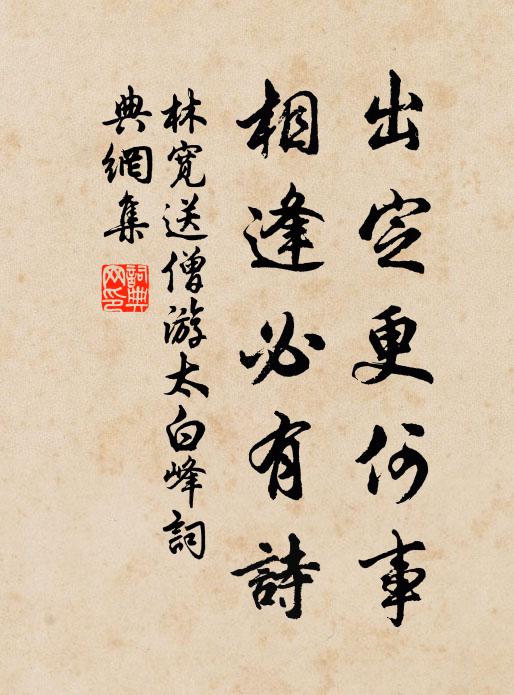 出定更何事
相逢必有詩
林寬送僧游太白峰詞
典網集
詞典
网印